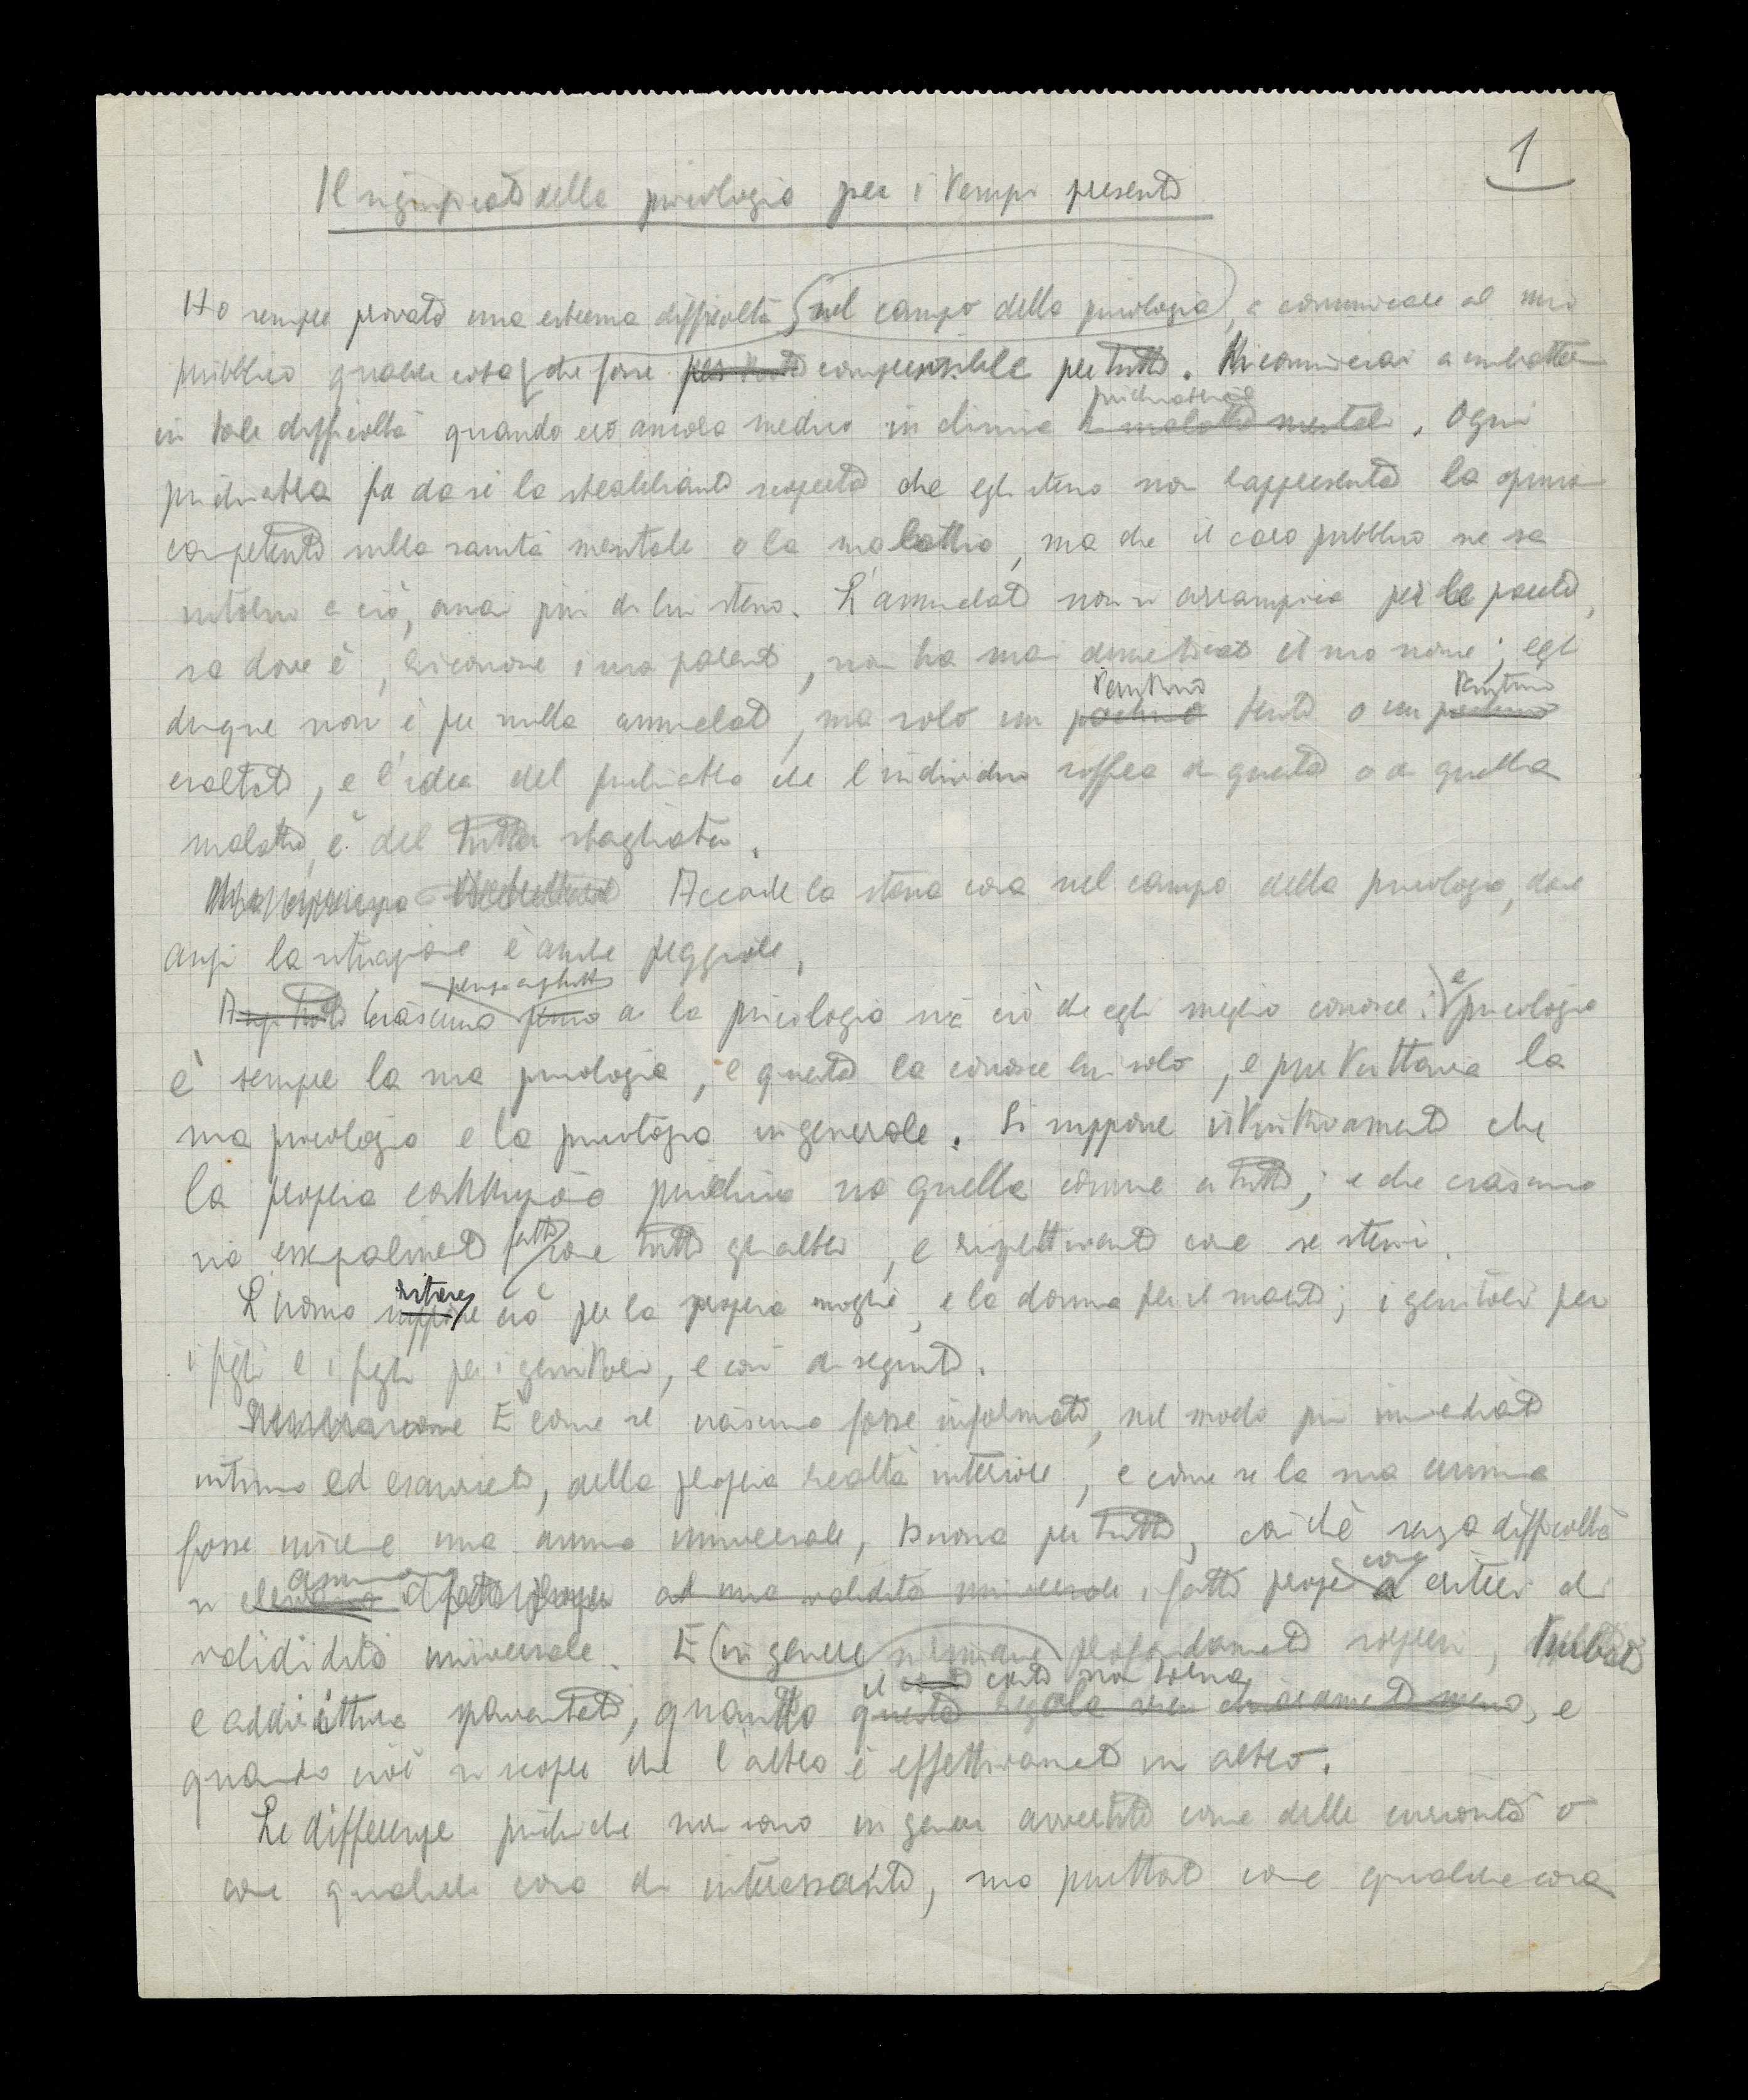 1
Il significato della psicologia per i tempi presenti
Ho sempre provato una estrema difficoltà, nel campo della psicologia, a comunicare al mio
pubblico qualche cosa che fosse per tutti comprensibile per tutti. Mi cominciai a imbattere
in tale difficoltà quando ero ancora medico in clinica psichiatrica malattie mentali. Ogni
psichiatra fa da sé la strabiliante scoperta che egli stesso non rappresenta la opinione
competente sulla sanità mentale o la malattia, ma che il caro pubblico ne sa
intorno a ciò, assai più di lui stesso. L'ammalato non si arrampica per le pareti,
sa dove è, riconosce i suoi parenti, non ha mai dimenticato il suo nome; egli
dunque non è per nulla ammalato, ma solo un pochino tantino tento o un pochino tantino
esaltato, e l'idea del psichiatra che l'individuo soffra di questa o di quella
malattia, è del tutto sbagliata.
Accade la stessa cosa nel campo della psicologia, dove
anzi la situazione è anche peggiore.
Anzitutto Ciascuno pensa anzitutto che la psicologia sia ciò che egli meglio conosce: e psicologia
è sempre la sua psicologia, e questa la conosce lui solo, e pur tuttavia la
sua psicologia e la psicologia in generale. Si suppone istintivamente che
la propria costituzione psichica sia quella comune a tutti; e che ciascuno
sia essenzialmente fatto come tutti gli altri, e rispettivamente come se stessi.
L'uomo suppone ritiene ciò per la propria moglie, e la donna per il marito; i genitori per
i figli e i figli per i genitori, e così di seguito.
È come se ciascuno fosse informato, nel modo più immediato
intimo ed esauriente, della propria realtà interiore, e come se la sua anima
fosse insieme una anima universale, buona per tutti, cosicché senza difficoltà
si elevano assumono ad una validità universale i fatti propri a come criteri di
valididità universale. E in genere si rimane profondamente sorpresi, turbati
e addirittura spaventati, quando questa regola vien chiaramente meno il conto non torna, e
quando cioè si scopre che l'altro è effettivamente un altro.
Le differenze psichiche non sono in genere avvertite come delle curiosità o
come qualche cosa di interessante, ma piuttosto come qualche cosa